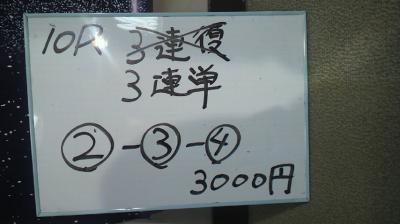 10R 3連復
3連単
②-③-④
3000円